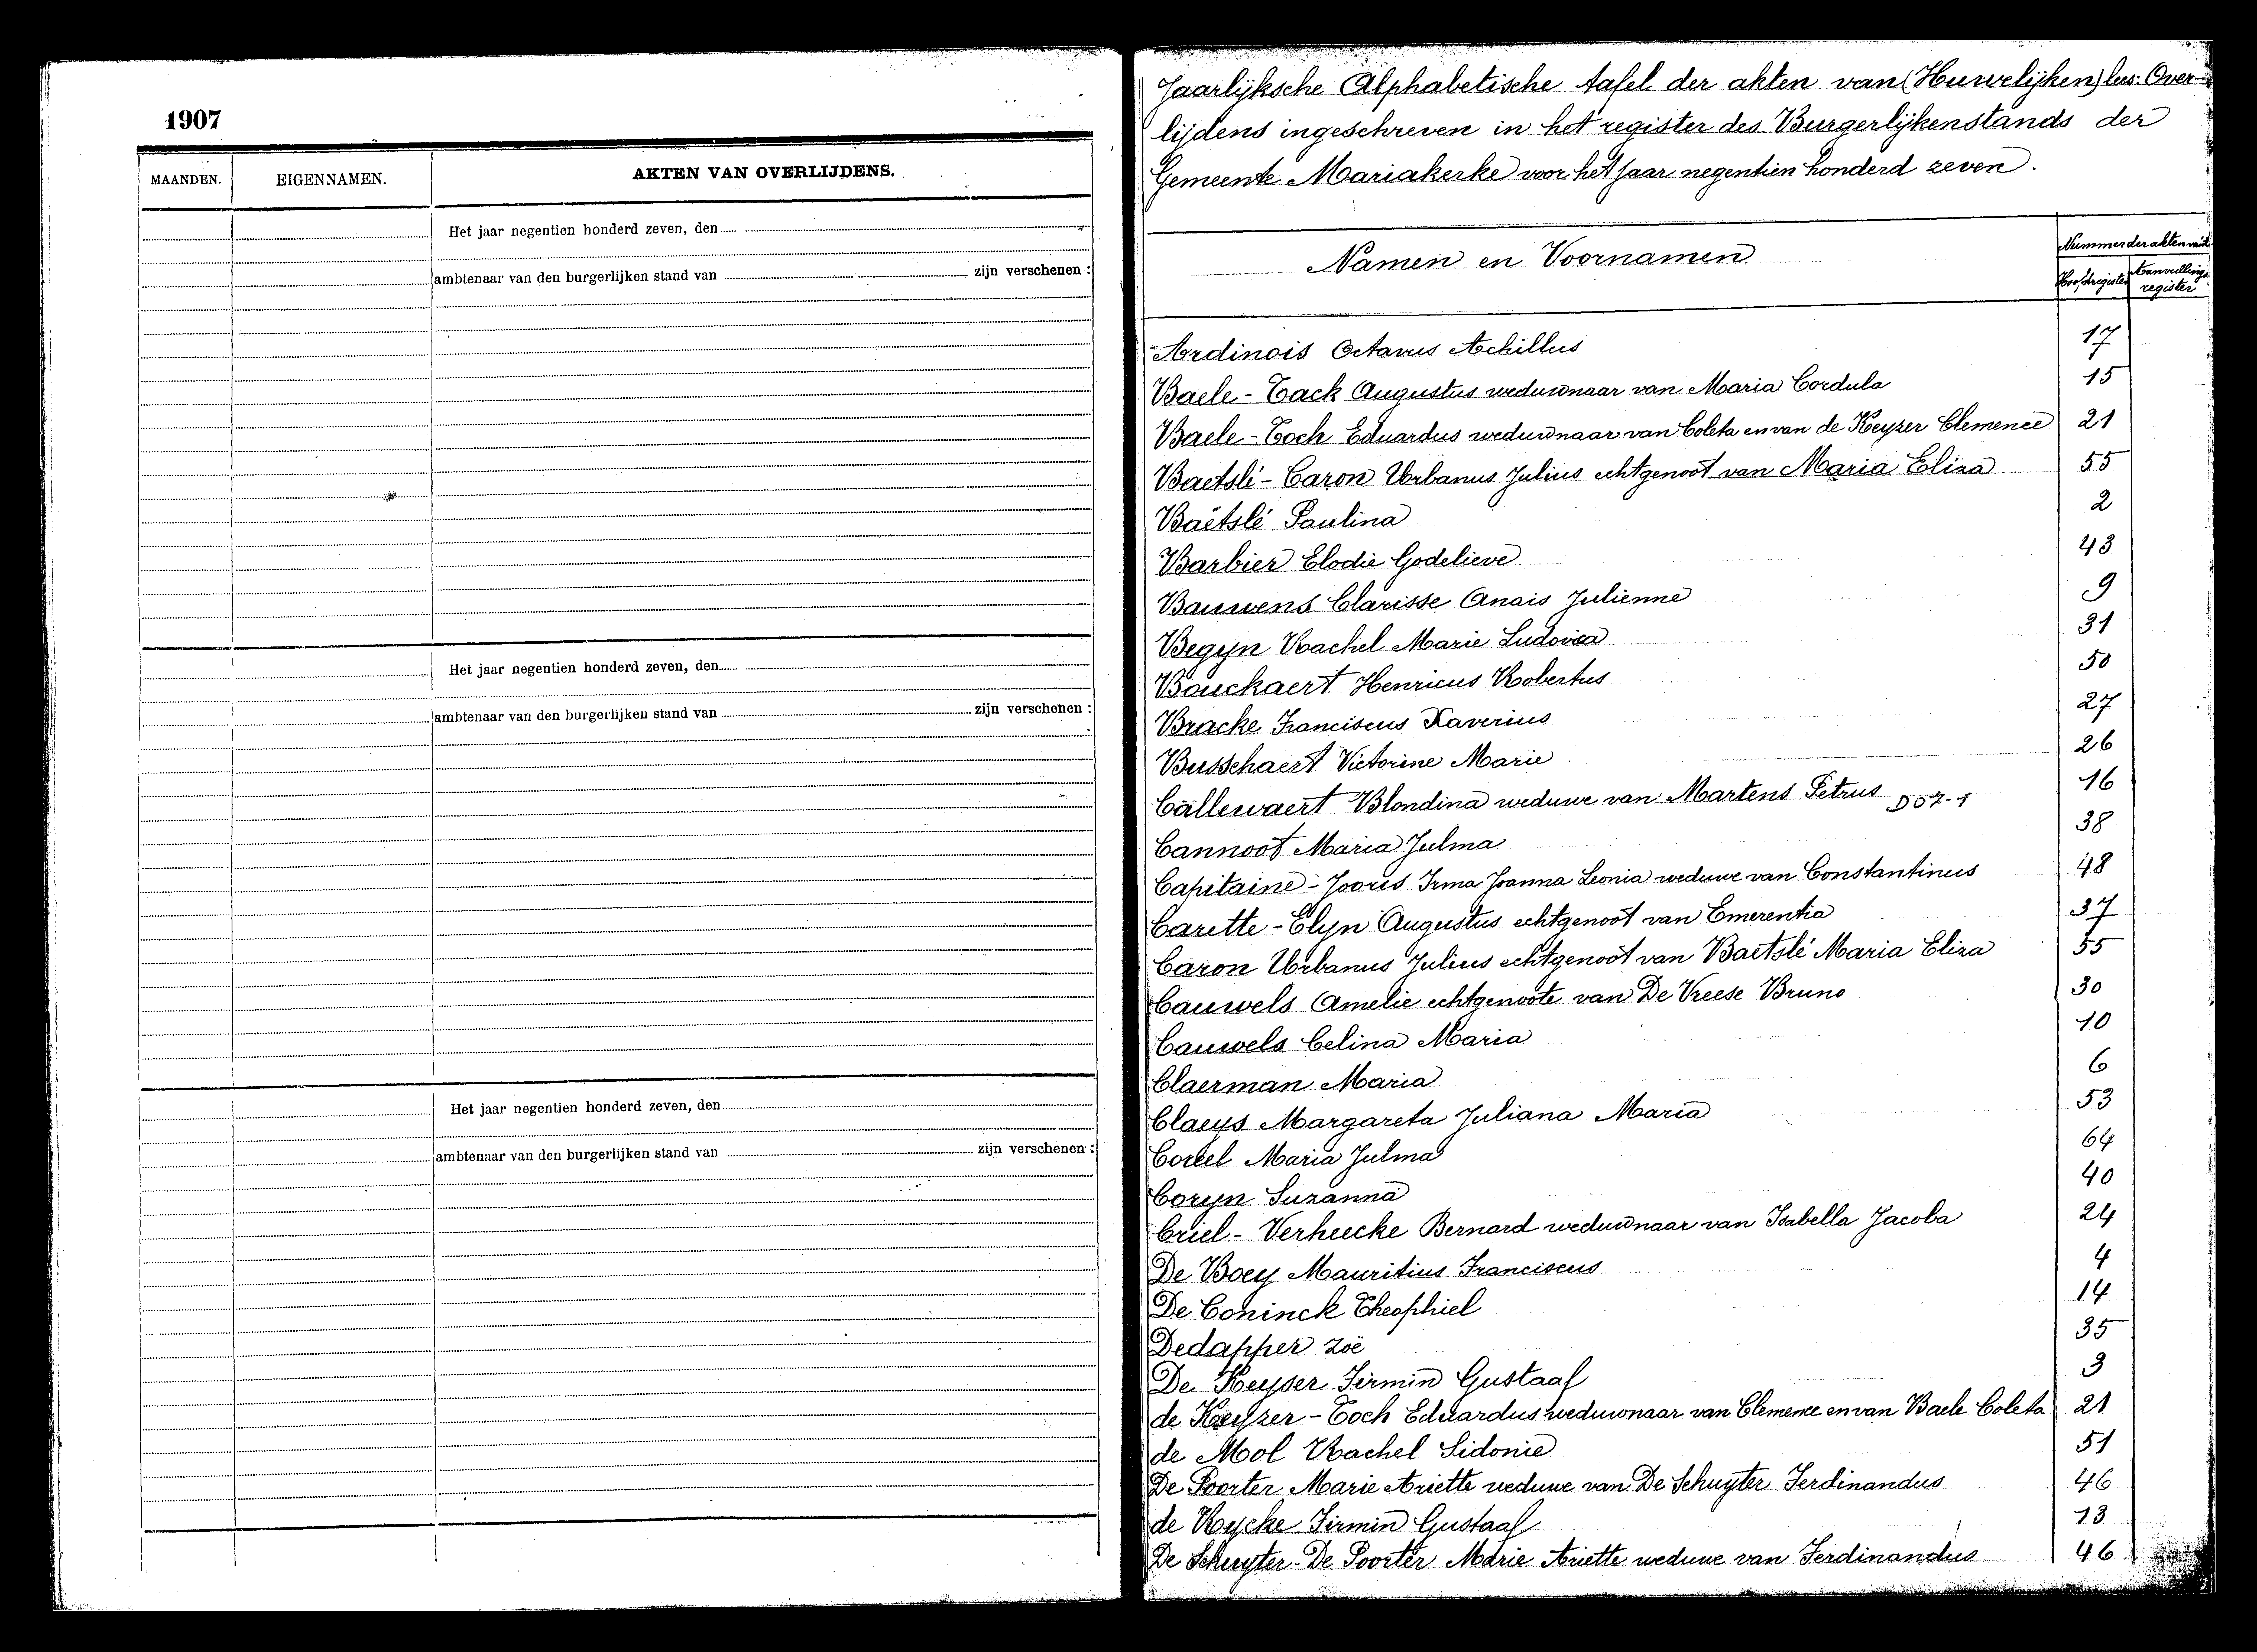 1907
MAANDEN.
EIGENNAMEN.
AKTEN VAN OVERLIJDENS.
Het jaar negentien honderd zeven, den
ambtenaar van den burgerlijken stand van zijn verschenen :
Het jaar negentien honderd zeven, den
ambtenaar van den burgerlijken stand van zijn verschenen :
Het jaar negentien honderd zeven, den
ambtenaar van den burgerlijken stand van zijn verschenen :
Jaarlijksche Alphabetische tafel der akten van (Huwelijken) lees: Over-
lijdens ingeschreven in het register des Burgerlijkenstands der
Gemeente Mariakerke voor het jaar negentien honderd zeven.
Namen en Voornamen
Nummer der akten van't
Hoofdregister
Aanvullings
register
Ardinois Octavus Achillus 17
Baele - Tack Augustus weduwnaar van Maria Cordula 15
Baele - Toch Eduardus weduwnaar van Coleta en van de Keyzer Clemence 21
Baetslé - Caron Urbanus Julius echtgenoot van Maria Eliza 55
Baetslé Paulina 2
Barbier Elodie Godelieve 43
Bauwens Clarisse Anais Julienne 9
Begyn Rachel Marie Ludovica 31
Bouckaert Henricus Robertus 50
Bracke Franciscus Xaverius 27
Busschaert Victorine Marie 26
Callewaert Blondina weduwe van Martens Petrus D07-1 16
Cannoot Maria Julma 38
Capitaine - Jooris Irma Joanna Leonia weduwe van Constantinus 48
Carette - Elyn Augustus echtgenoot van Emerentia 37
Caron Urbanus Julius echtgenoot van Baetslé Maria Eliza 55
Cauwels Amelie echtgenoote van De Vreese Bruno 30
Cauwels Celina Maria 10
Claerman Maria 6
Claeys Margareta Juliana Maria 53
Maria Julma 64
Coryn Suzanna 40
Criel - Verheecke Bernard weduwnaar van Isabella Jacoba 24
De Boey Mauritius Franciscus 4
De Coninck Theophiel 14
Dedapper Zoë 35
De Keyser Firmin Gustaaf 3
de Keyzer - Toch Eduardus weduwnaar van Clemence en van Baele Coleta 21
de Mol Rachel Sidonie 51
De Poorter Marie Ariette weduwe van De Schuyter Ferdinandus 46
de Rycke Firmin Gustaaf 13
De Schuyter - De Poorter Marie Ariette weduwe van Ferdinandus 46